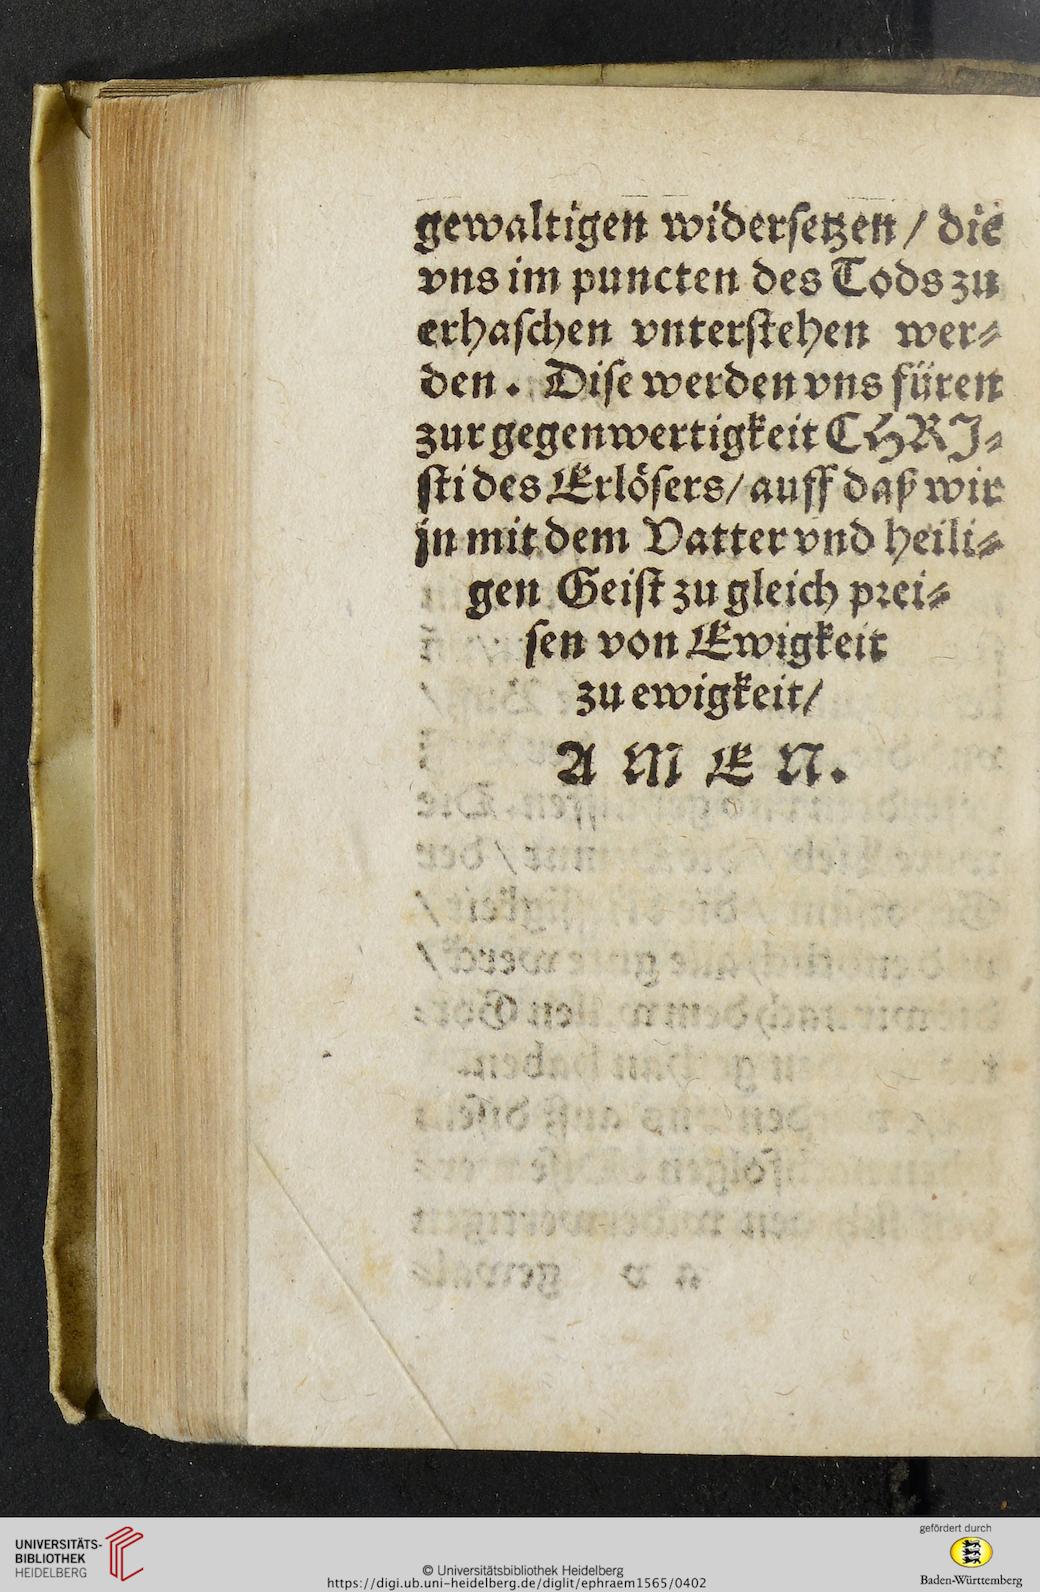 gewaltigen widersetzen / die
vns im puncten des Tods zu
erhaſchen vnterſtehen wer⸗
den. Diſe werden vns füren
zur gegenwertigkeit CHRJ⸗
ſti des Erlöſers / auff daß wir
jn mit dem Vatter vnd heili⸗
gen Geiſt zu gleich prei⸗
ſen von Ewigkeit
zu ewigkeit /
A M E N.
UNIVERSITÄTS-
BIBLIOTHEK
HEIDELBERG
© Universitätsbibliothek Heidelberg
https://digi.ub.uni-heidelberg.de/diglit/ephraem1565/0402
gefördert durch
Baden-Württemberg